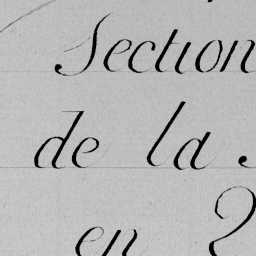 Section
de la
en 2